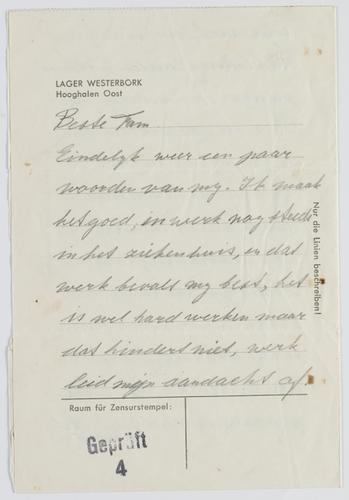 LAGER WESTERBORK
Hooghalen Oost
Beste Fam.
Eindelijk weer een paar
woorden van my. Ik maak
het goed, en werk nog steeds
in het ziekenhuis, en dat
werk bevalt my best, het
is wel hard werken maar
dat hindert niet, werk
leid mijn aandacht af.
Nur die Linien beschreiben!
Raum für Zensurstempel:
Geprüft
4